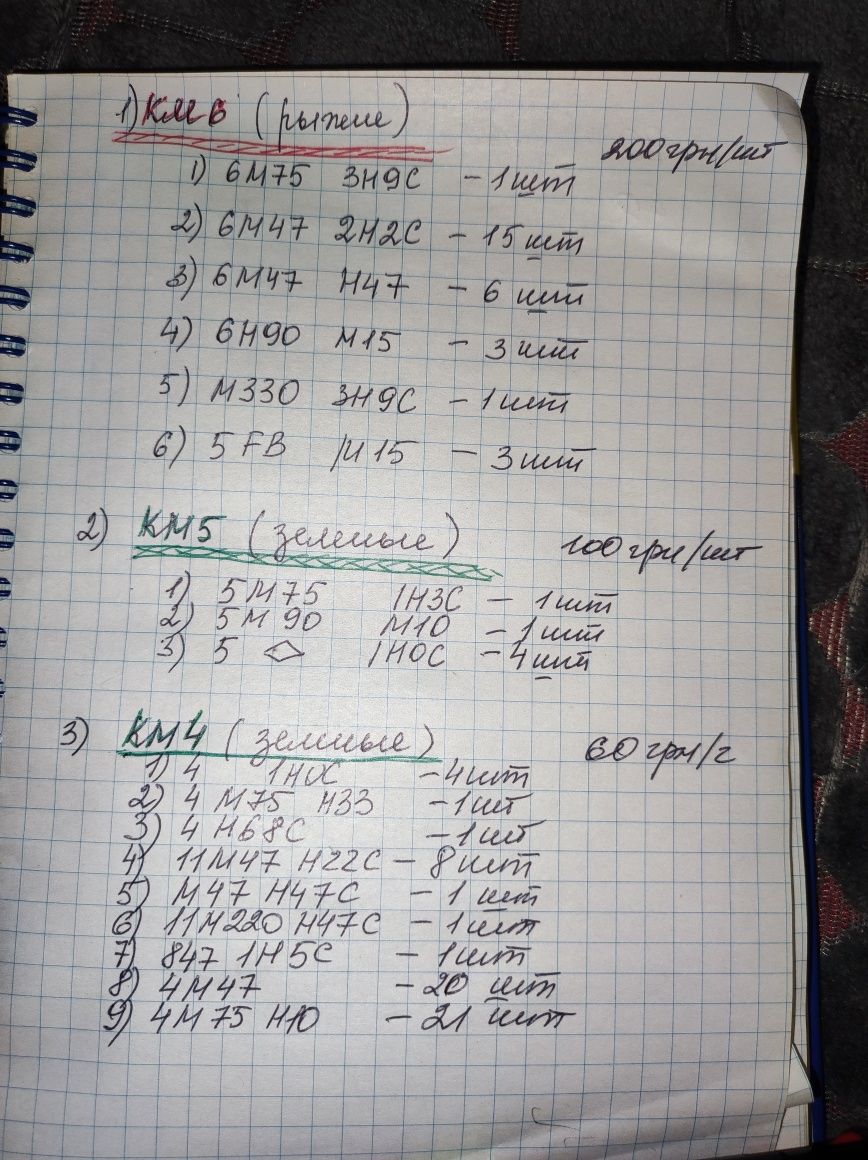 1) КМ6 (рыжие)
200грн/шт
1) 6М75 3Н9С - 1шт
2) 6М47 2Н2С - 15 шт
3) 6М47 Н47 - 6 шт
4) 6Н90 М15 - 3 шт
5) М330 3Н9С - 1 шт
6) 5FВ М15 - 3шт
2) КМ5 (зеленые)
100грн/шт
1) 5М75 1Н3С - 1шт
2) 5М90 М10 - 1шт
3) 5 ◇ 1Н0С - 4шт
3) КМ4 (зеленые)
60грн/г
1) 4 1Н0С - 4шт
2) 4 М75 Н33 - 1шт
3) 4 Н68С - 1шт
4) 11М47 Н22С - 8 шт
5) М47 Н47С - 1 шт
6) 11М220 Н47С - 1шт
7) 847 1Н5С - 1шт
8) 4М47 - 20 шт
9) 4М75 Н10 - 21 шт